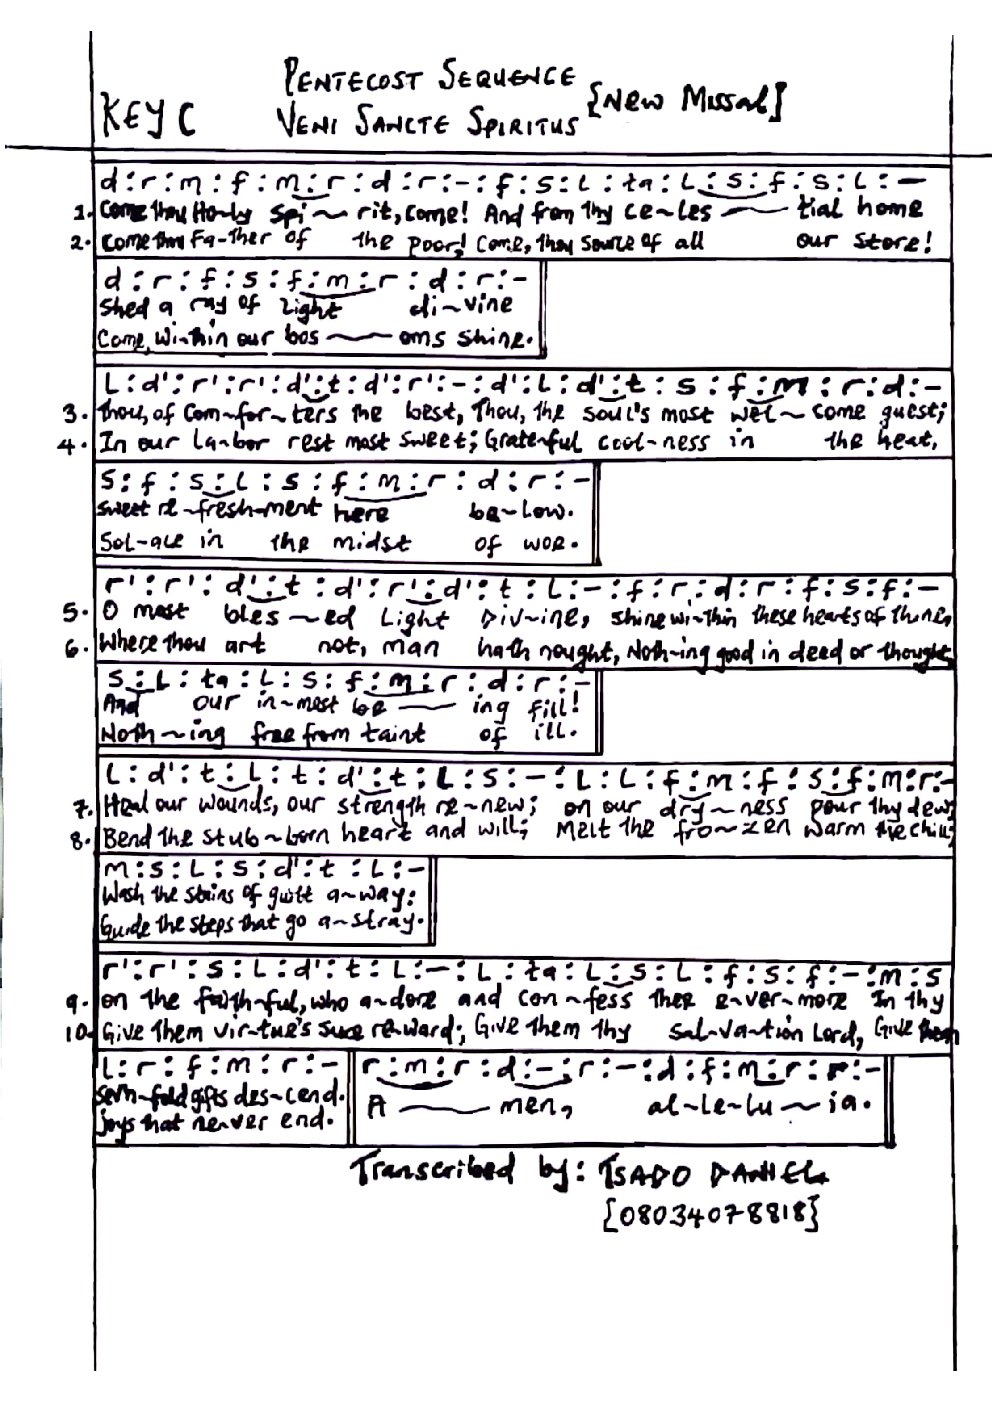 PENTECOST SEQUENCE
KEY C VENI SANCTE SPIRITUS [New Missal]
d : r : m : f : m : r : d : r : - : f : s : l : ta : l : s : f : s : l : -
1. Come thou Ho~ly Spi ~ rit, come! And from thy ce~les ~ tial home
2. Come thou Fa~ther of the poor! Come, thou source of all our store!
d : r : f : s : f : m : r : d : r : -
Shed a ray of light di~vine
Come, wi~thin our bos ~ oms shine.
L : d' : r' : r' : d' : t : d' : r' : - : d' : L : d' : t : s : f : m : r : d : -
3. Thou, of Com~for~ters the best, Thou, the soul's most wel~come guest;
4. In our la~bor rest most sweet; Grateful cool~ness in the heat,
S : f : s : L : s : f : m : r : d : r : -
Sweet re~fresh~ment here be~low.
Sol~ace in the midst of woe.
r' : r' : d' : t : d' : r' : d' : t : L : - : f : r : d : r : f : s : f : -
5. O most bles~ed Light Div~ine, shine wi~thin these hearts of thine,
6. Where thou art not, man hath nought, Noth~ing good in deed or thought
S : L : ta : L : S : f : m : r : d : r : -
And our in~most be ~ ing fill!
Noth~ing free from taint of ill.
L : d' : t : L : t : d' : t : L : S : - : L : L : f : m : f : s : f : m : r : -
7. Heal our wounds, our strength re~new; on our dry~ness pour thy dew;
8. Bend the stub~born heart and will; Melt the fro~zen warm the chill;
m : s : L : S : d' : t : L : -
Wash the stains of guilt a~way:
Guide the steps that go a~stray.
r' : r' : s : L : d' : t : L : - : L : ta : L : s : L : f : s : f : - : m : s
9. on the faith~ful, who a~dore and con~fess thee e~ver~more In thy
10. Give them vir~tue's sure re~ward; Give them thy sal~va~tion Lord, Give them
L : r : f : m : r : - r : m : r : d : - : r : - : d : f : m : r : r : -
Sevn~fold gifts des~cend. A ~ men, al~le~lu~ia.
Joys that ne~ver end.
Transcribed by: TSADO DANIEL
[08034078818]